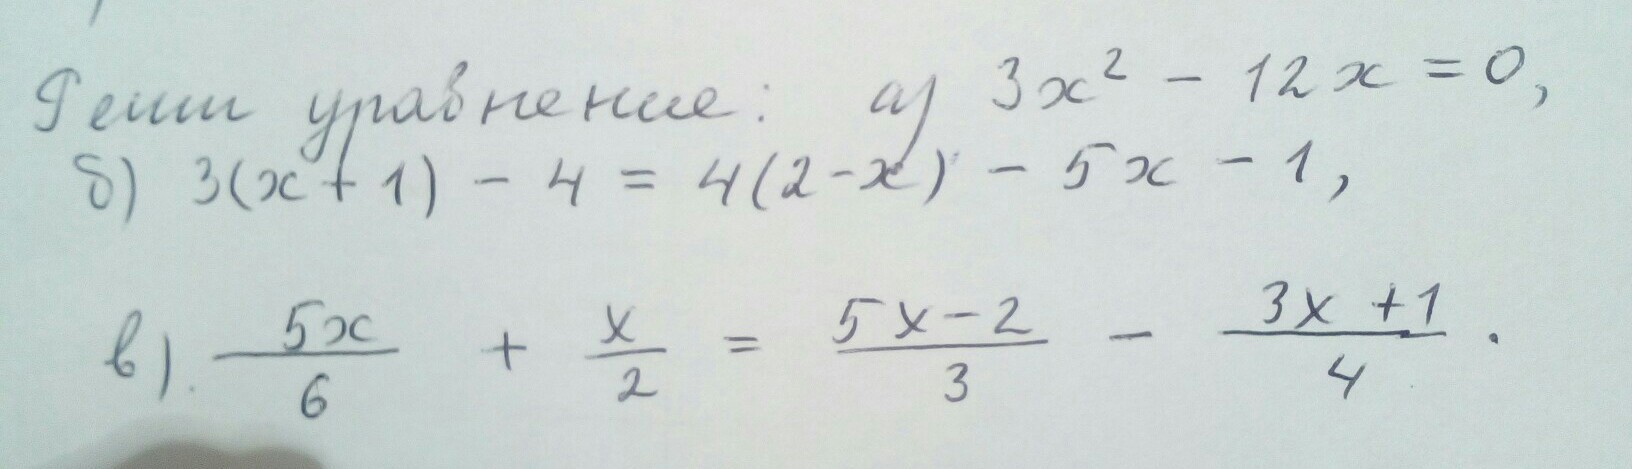 Реши уравнение: а) 3x² - 12x = 0,
б) 3(x+1) - 4 = 4(2-x) - 5x - 1,
в). 5x/6 + x/2 = 5x-2/3 - 3x+1/4.